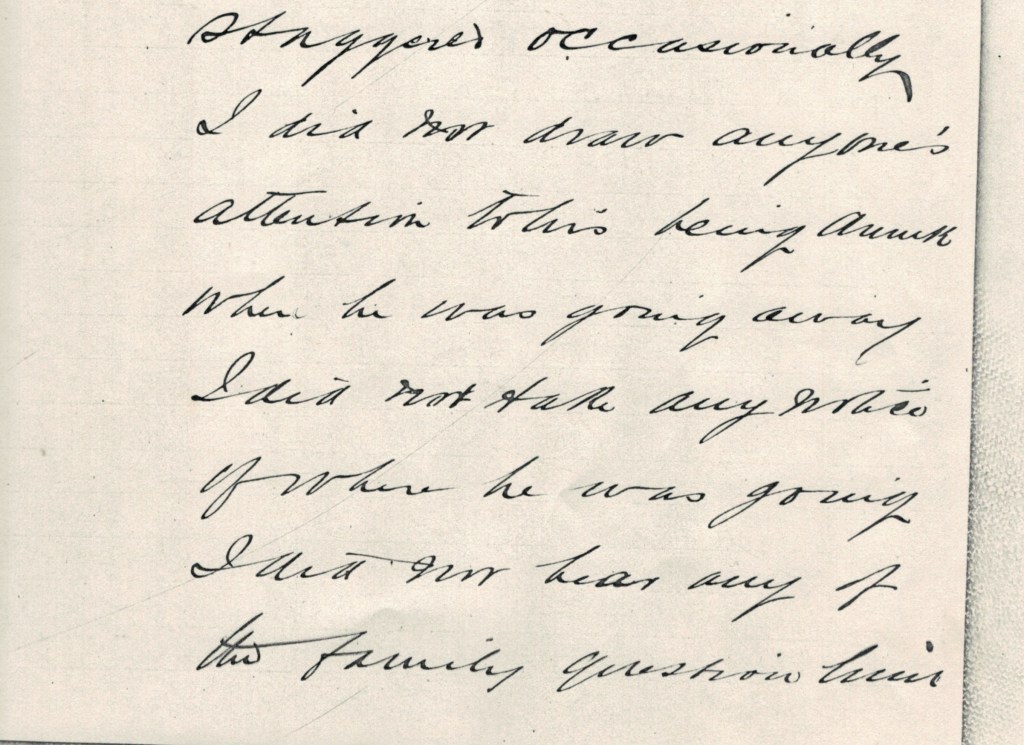 staggered occasionally
I did not draw anyone's
attention to his being drunk
when he was going away
I did not take any notice
of where he was going
I did not hear any of
the family question him